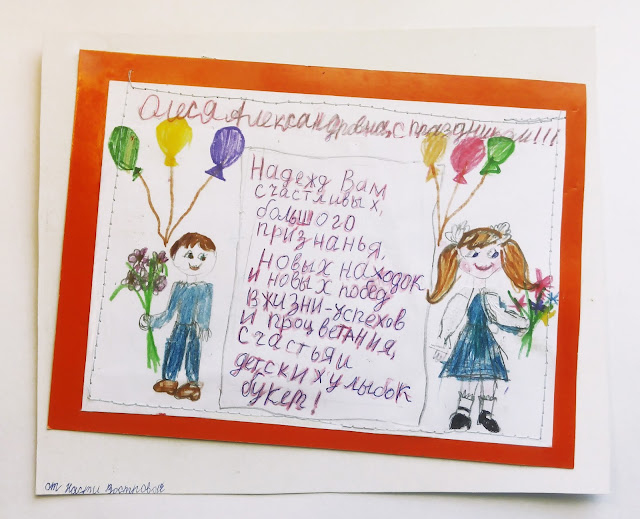 Олеся Александровна, с праздником!!!
Надежд Вам
счастливых,
большого
признанья,
новых находок
и новых побед
в жизни-успехов
и процветания,
счастья и
детских улыбок
букет!
от Насти